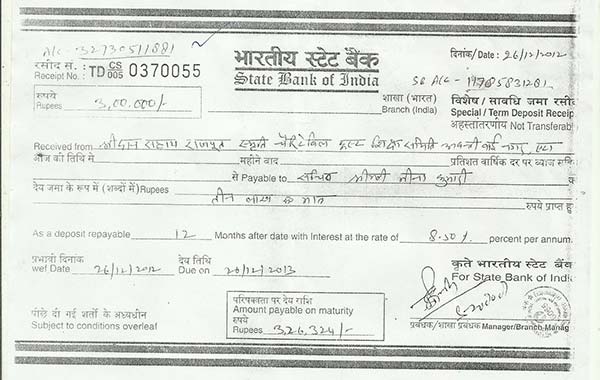 A/c - 32730511881
भारतीय स्टेट बैंक
State Bank of India
दिनांक/Date : 26/12/2012
रसीद सं. :
Receipt No. : TD CS 005 0370055
SB A/c - 11705831201
रुपये
Rupees 3,00,000/-
शाखा (भारत)
Branch (India)
विशेष / सावधि जमा रसीद
Special / Term Deposit Receip
अहस्तातरणीय Not Transferab
Received from श्रीदान सहाय राजपूत स्मृति चैरिटेबिल ट्रस्ट शिक्षा समिति नगर एटा
आज की तिथि में महीने बाद प्रतिशत वार्षिक दर पर ब्याज
से Payable to सचिव श्रीमती मीना कुमारी
देय जमा के रूप में (शब्दों में) Rupees तीन लाख रु मात्र रुपये प्राप्त हु
As a deposit repayable 12 Months after date with Interest at the rate of 8.50 % percent per annum.
प्रभावी दिनांक
wef Date 26/12/2012
देय तिथि
Due on 26/12/2013
कृते भारतीय स्टेट बैंक
For State Bank of India
पीछे दी गई शर्तों के अध्यधीन
Subject to conditions overleaf
परिपक्वता पर देय राशि
Amount payable on maturity
रुपये
Rupees 3,26,324/-
प्रबंधक/शाखा प्रबंधक Manager/Branch Manag